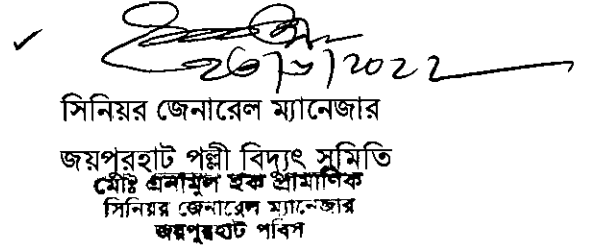 সিনিয়র জেনারেল ম্যানেজার
জয়পুরহাট পল্লী বিদ্যুৎ সমিতি
মোঃ এনামুল হক প্রামাণিক
সিনিয়র জেনারেল ম্যানেজার
জয়পুরহাট পবিস